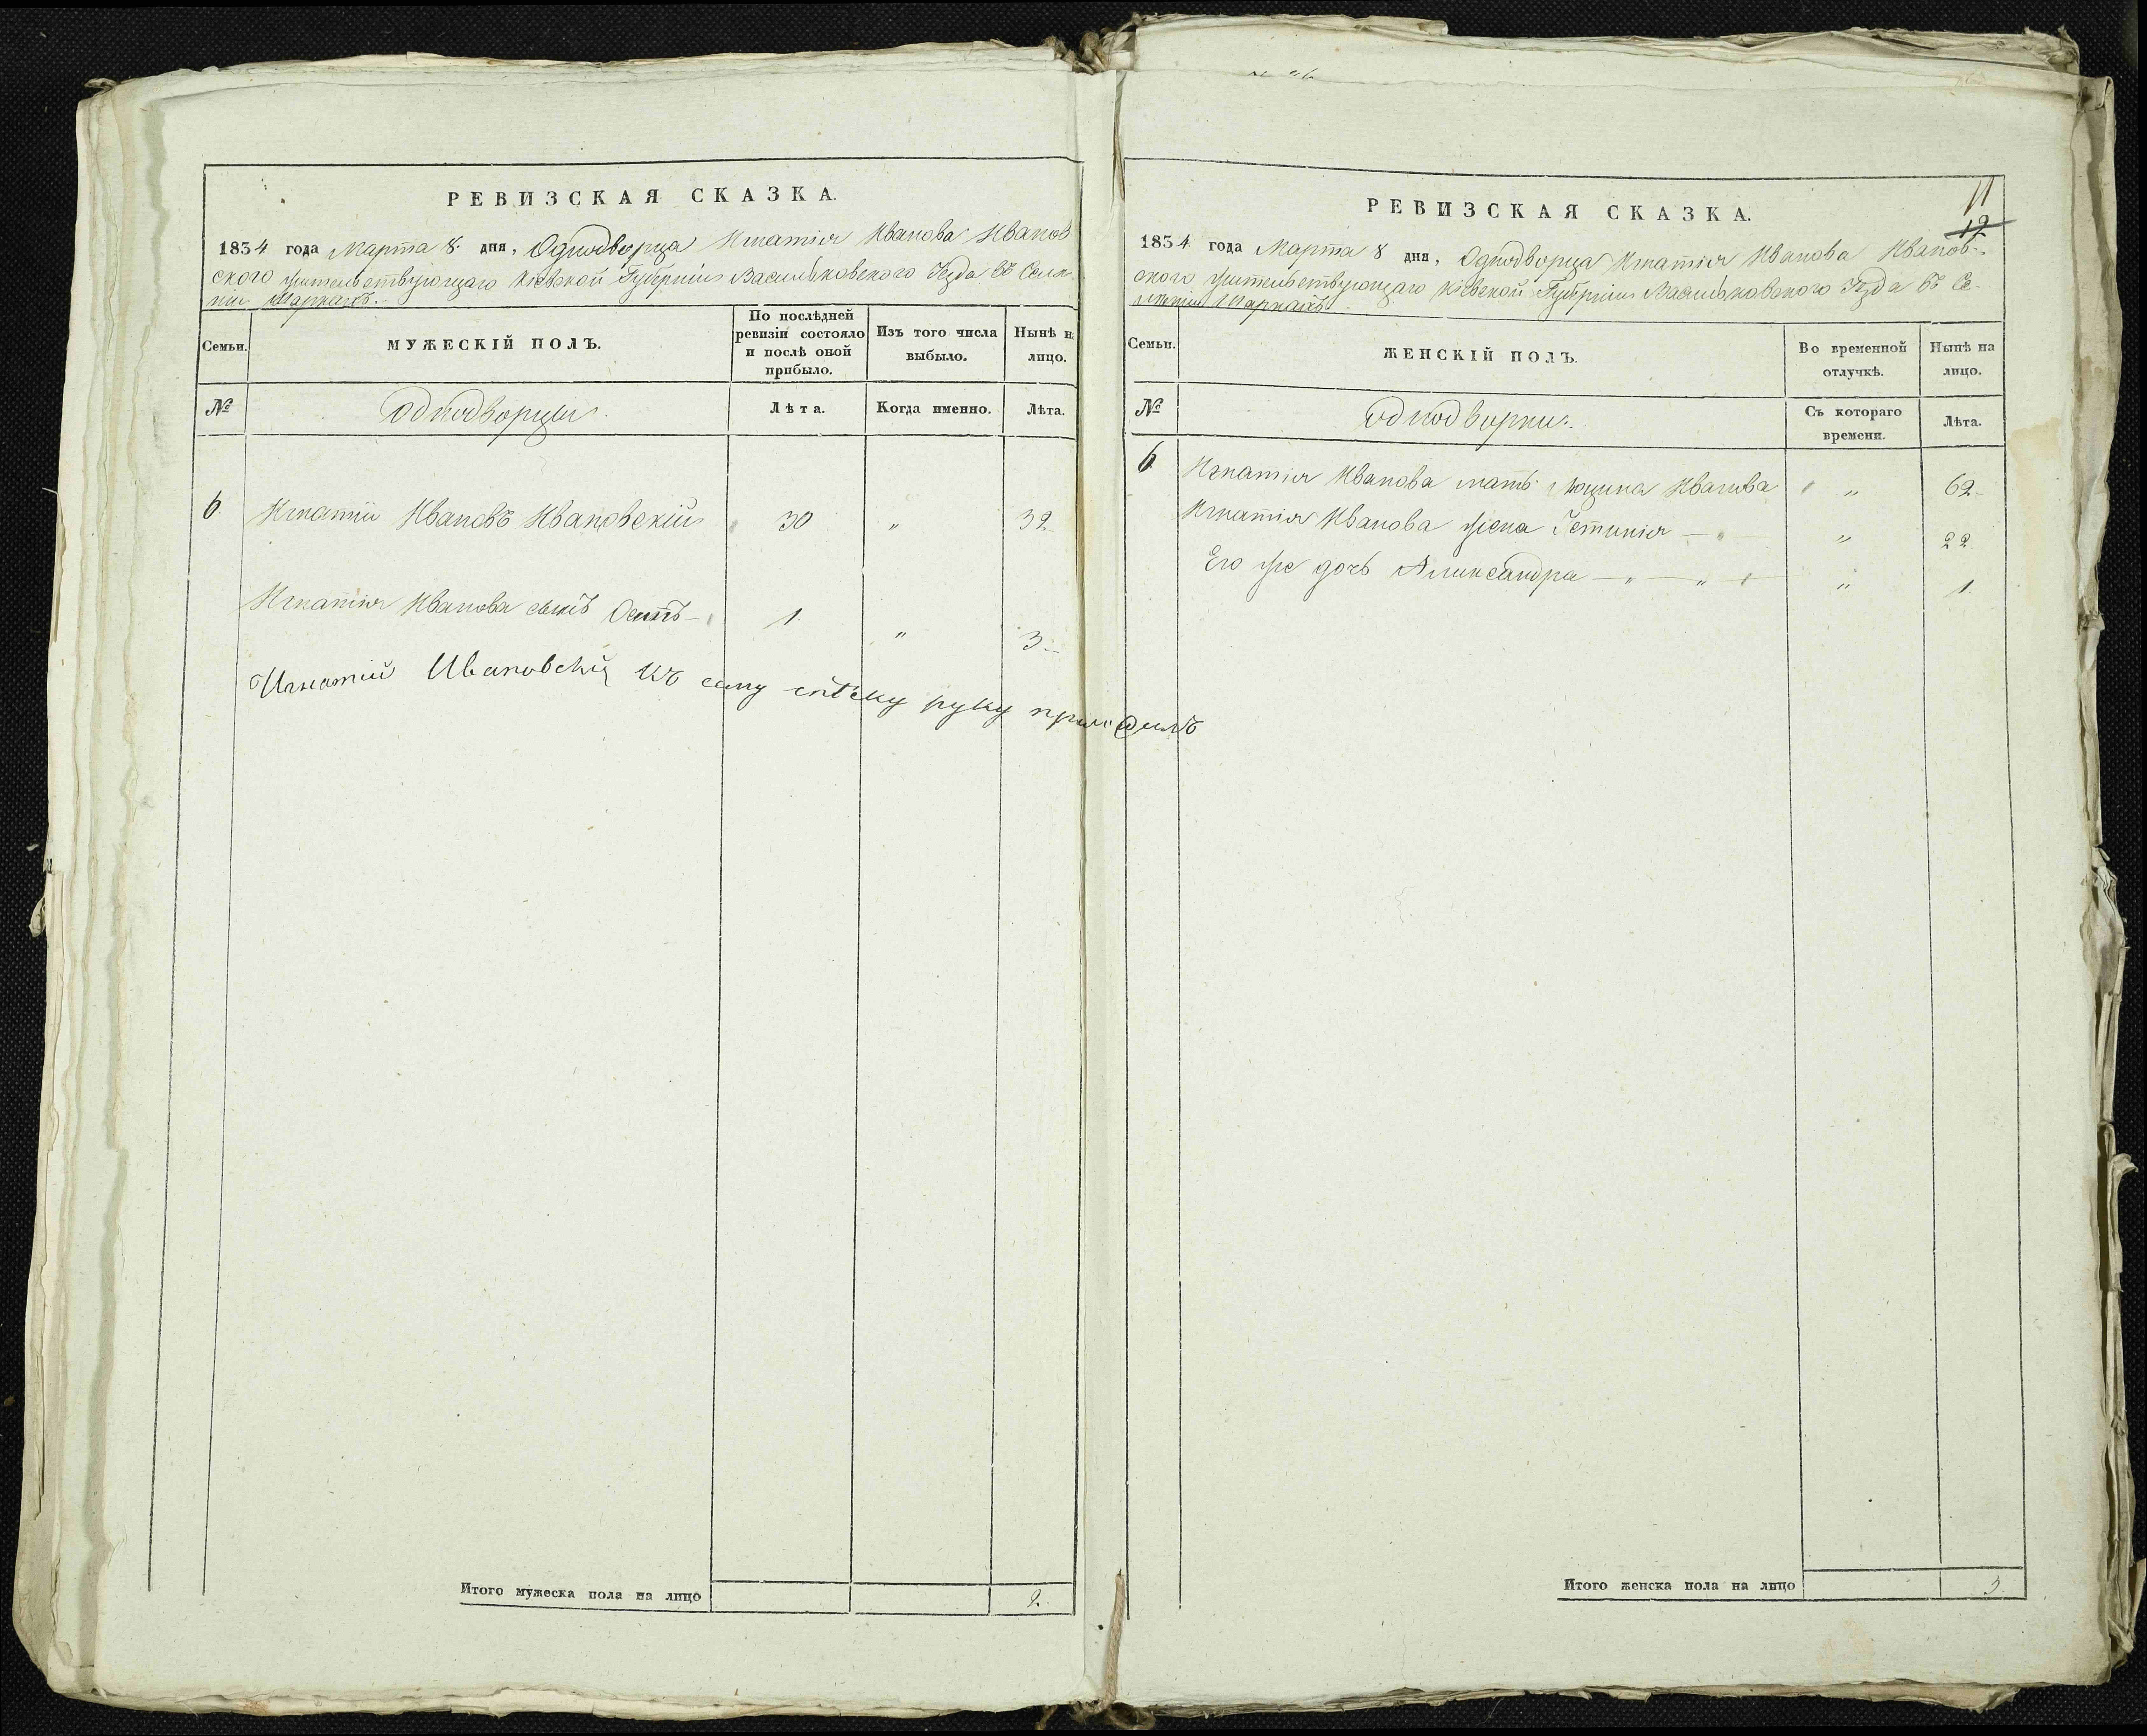 РЕВИЗСКАЯ СКАЗКА.
1834 года Марта 8. дня, Однодворца Игнатія Иванова Иванов
ского жительствующаго Кіевской Губерніи Васильковского Уезда въ Селе
ніи Шаркахъ.
Семьи.
МУЖЕСКІЙ ПОЛЪ.
По послѣдней
ревизіи состояло
и послѣ оной
прибыло.
Изъ того числа
выбыло.
Нынѣ н
лицо.
№
Однодворцы.
Лѣта.
Когда именно.
Лѣта.
6. Игнатій Ивановъ Ивановскій 30 " 32
Игнатія Иванова сынъ Осипъ 1. " 3
Игнатій Ивановскій къ сему руку приложилъ
Итого мужеска пола на лицо 2.
11
12
РЕВИЗСКАЯ СКАЗКА.
1834 года Марта 8 дня, Однодворца Игнатія Иванова Иванов-
ского жительствующаго Кіевской Губерніи Васильковского Уезда въ Се-
леніи Шаркахъ.
Семьи.
ЖЕНСКІЙ ПОЛЪ.
Во временной
отлучкѣ.
Нынѣ на
лицо.
№
Однодворки.
Съ котораго
времени.
Лѣта.
6 Игнатія Иванова мать Иванова " 62
Игнатія Иванова жена Устинія " 22
Его же дочь Александра " 1
Итого женска пола на лицо 3.